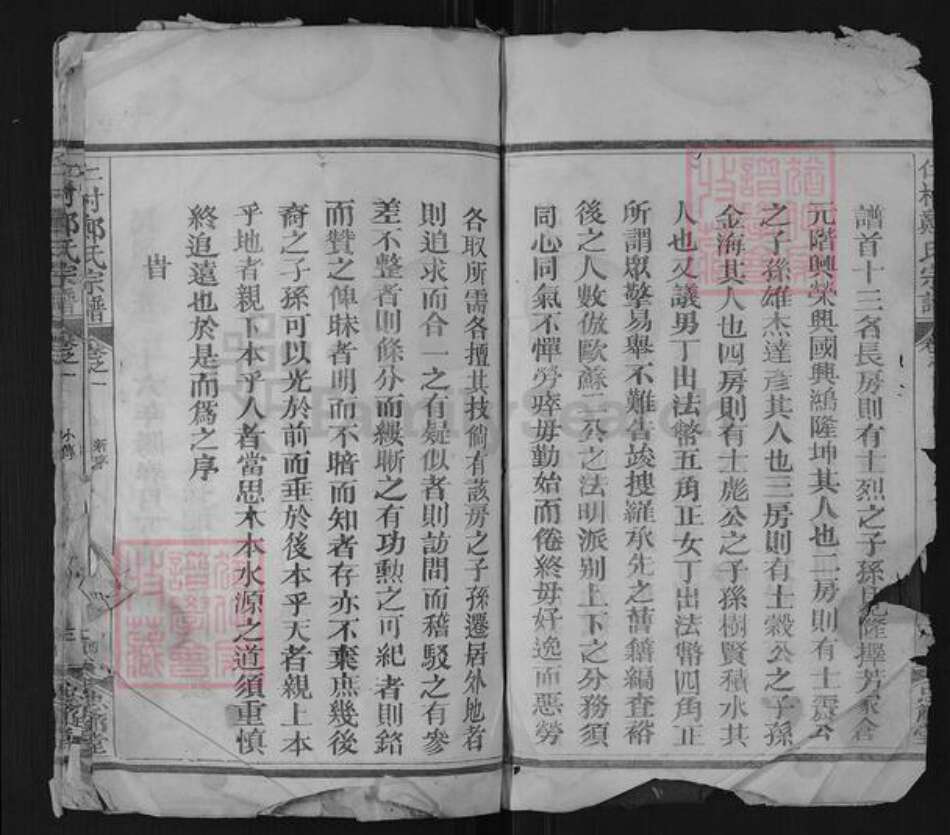 譜首十三名長房則有士烈之子孫
元階興榮興國興鴻隆坤其人也二房則有士
之子孫雄杰達彥其人也三房則有士毅公之子孫
金海其人也四房則有士彪公之子孫樹賢積水其
人也又議男丁出法幣五角正女丁出法幣四角正
所謂眾擎易舉不難告竣搜羅承先之舊籍編查裕
後之人數倣歐蘇二公之法明派別上下之分務須
同心同氣不憚勞瘁毋勤始而倦終毋好逸而惡勞
各取所需各擅其技倘有該房之子孫遷居外地者
則追求而合一之有疑似者則訪問而稽駁之有參
差不整者則條分而縷晰之有功勲之可紀者則銘
而贊之俾昧者明而不暗而知者存亦不棄庶幾後
裔之子孫可以光於前而垂於後本乎天者親上本
乎地者親下本乎人者當思木本水源之道須重慎
終追遠也於是而為之序
旹
村鄭氏宗譜
卷之一
小傳
FamilySearch